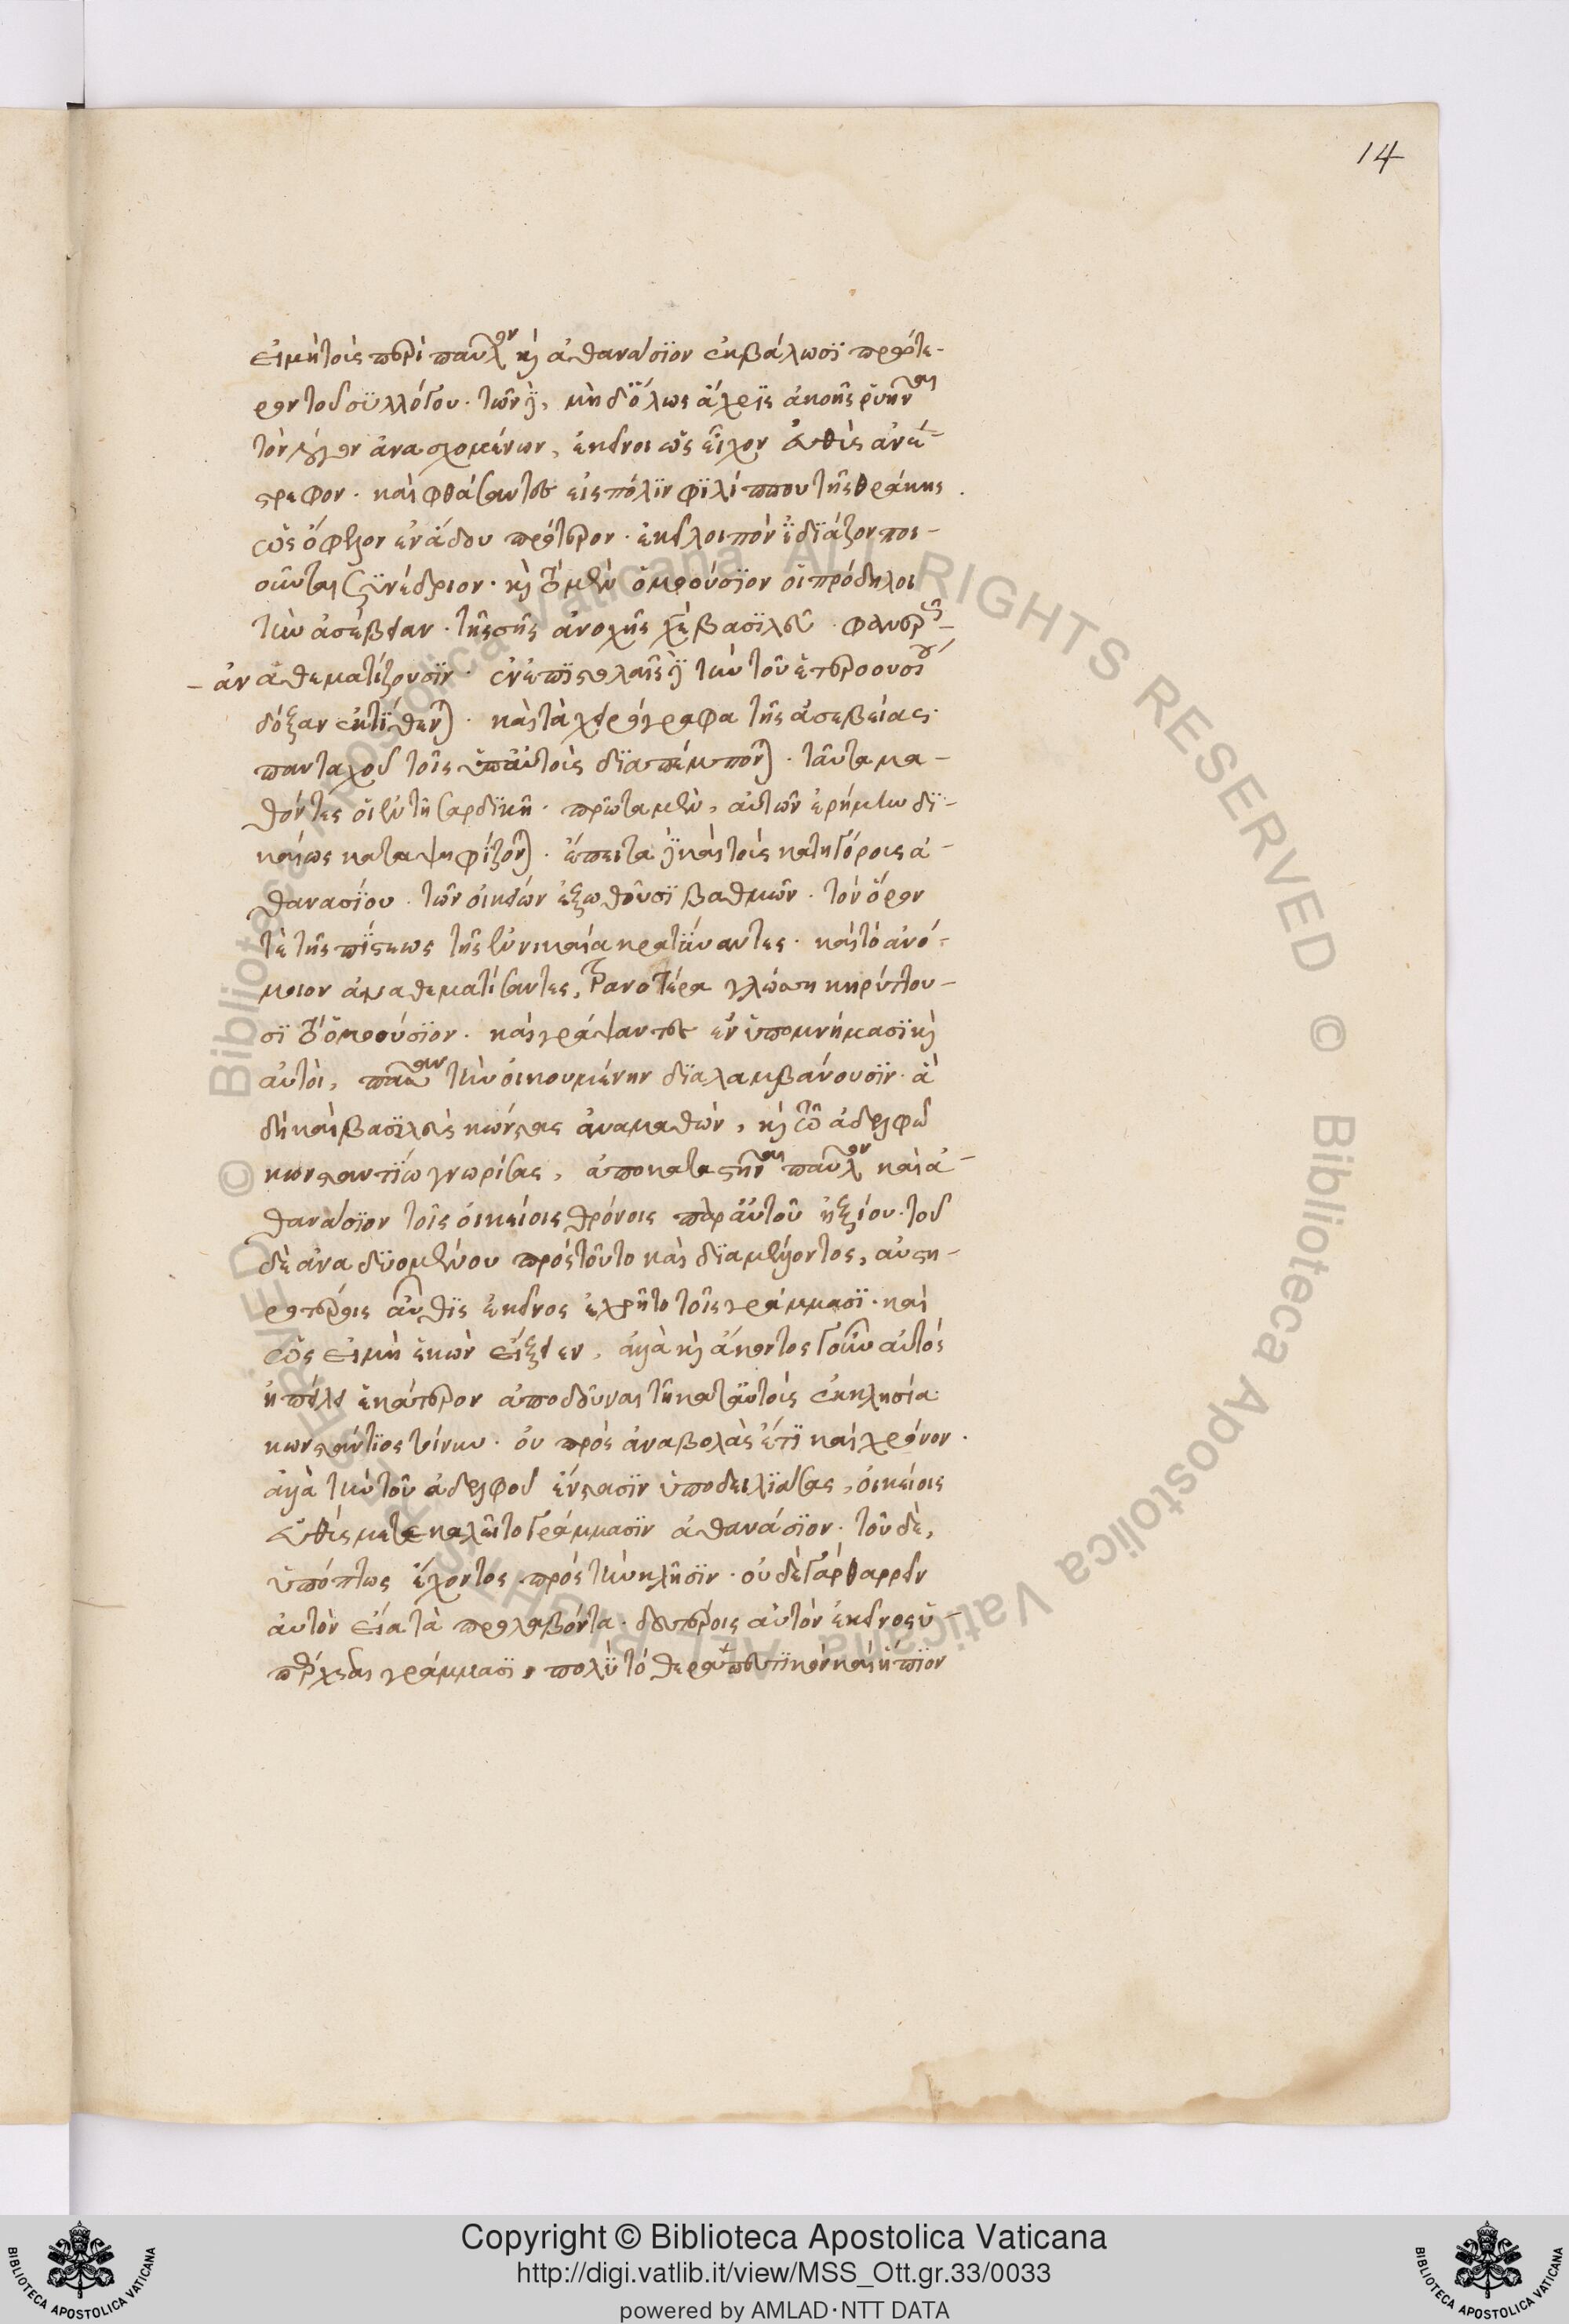 14
εἰμὴ τοῖς περὶ παῦλον καὶ ἀθανάσϊον ἐκβάλωσϊ πρότε-
ρον τοῦ σϋλλόγου. τῶν δὲ, μηδ' ὅλως ἄχρϊς ἀκοῆς ἐνεγκεῖν
τὸν λόγον ἀνασχομένων, ἐκεῖνοι ὡς εἶχον αὖθις ἀνέ-
στρεφον. καὶ φθάσαντες εἰς πόλϊν φϊλίππου τῆς θράκης
ὡς ὄφελον ἐν ἅδου πρότερον. ἐκεῖ λοιπὸν ἰδϊάζον ποι-
οῦνται σϋνέδριον. καὶ τὸ μὲν ὁμοούσϊον οἱ πρόδηλοι
τὴν ἀσέβειαν. τῆς σῆς ἀνοχῆς χριστὲ βασϊλεῦ. φανερῶς
- ἀναθεματίζουσϊν. ἐν ἐπϊστολαῖς δὲ τὴν τοῦ ἑτεροουσίου
δόξαν ἐκτϊθένται. καὶ τὰ χειρόγραφα τῆς ἀσεβείας.
πανταχοῦ τοῖς ὑπ' αὐτοῖς δϊαπέμπονται. ταῦτα μα-
θόντες οἱ ἐν τῇ σαρδϊκῇ. πρῶτα μὲν, αὐτῶν ἐρήμην δϊ-
καίως καταψηφίζονται. ἔπειτα δὲ καὶ τοῖς κατηγόροις ἀ-
θανασίου. τῶν οἰκείων ἐξωθοῦσϊ βαθμῶν. τὸν ὅρον
τὲ τῆς πϊστεως τῆς ἐν νικαία κρατϋναντες. καὶ τὸ ἀνό-
μοιον ἀναθεματίσαντες, τρανοτέρα γλώσση κηρύττου-
σϊ τὸ ὁμοούσϊον. καὶ γράψαντες ἐν ὑπομνήμασϊ καὶ
αὐτοὶ, πᾶσαν τὴν οἰκουμένην δϊαλαμβάνουσϊν. ἃ
δὴ καὶ βασϊλεὺς κώνστας ἀναμαθὼν, καὶ τῶ ἀδελφῶ
κωνσταντϊω γνωρίσας, ἀποκαταστῆναι παῦλον καὶ ἀ-
θανάσϊον τοῖς οἰκείοις θρόνοις παρ' αὐτοῦ ἠξίου. τοῦ
δὲ ἀναδϋομένου πρὸς τοῦτο καὶ δϊαμέλλοντος, αὐστη-
ροτέροις αὖθϊς ἐκεῖνος ἐχρῆτο τοῖς γράμμασϊ. καὶ
ὡς εἰμὴ ἑκὼν εἴξειεν, ἀλλὰ καὶ ἄκοντος γοῦν αὐτὸς
ἠπείλει ἑκάτερον ἀποδοῦναι τῆ κατ' αὐτοὺς ἐκκλησία.
κωνστάντϊος τοίνυν. οὐ πρὸς ἀναβολὰς ἔτϊ καὶ χρόνον.
ἀλλὰ τὴν τοῦ ἀδελφοῦ ἔνστασϊν ὑποδειλϊάσας, οἰκείοις
αὖθις μετεκαλεῖτο γράμμασϊν ἀθανάσϊον. τοῦ δὲ,
ὑπόπτως ἔχοντος πρὸς τὴν κλῆσϊν. οὐδὲ γὰρ θαρρεῖν
αὐτὸν εἴα τὰ προλαβόντα. δευτέροις αὐτὸν ἐκεῖνος ὑ-
πέρχεται γράμμασϊ, πολὺ τὸ θεραπευτϊκὸν καὶ ἤπϊον
Copyright © Biblioteca Apostolica Vaticana
http://digi.vatlib.it/view/MSS_Ott.gr.33/0033
powered by AMLAD·NTT DATA